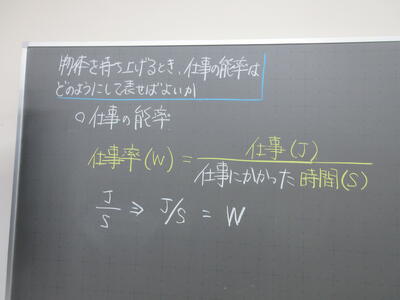 物体を持ち上げるとき、仕事の能率は
どのようにして表せばよいか
○仕事の能率
仕事率(W) = 仕事(J) / 仕事にかかった時間(S)
J/S ⇒ J/S = W